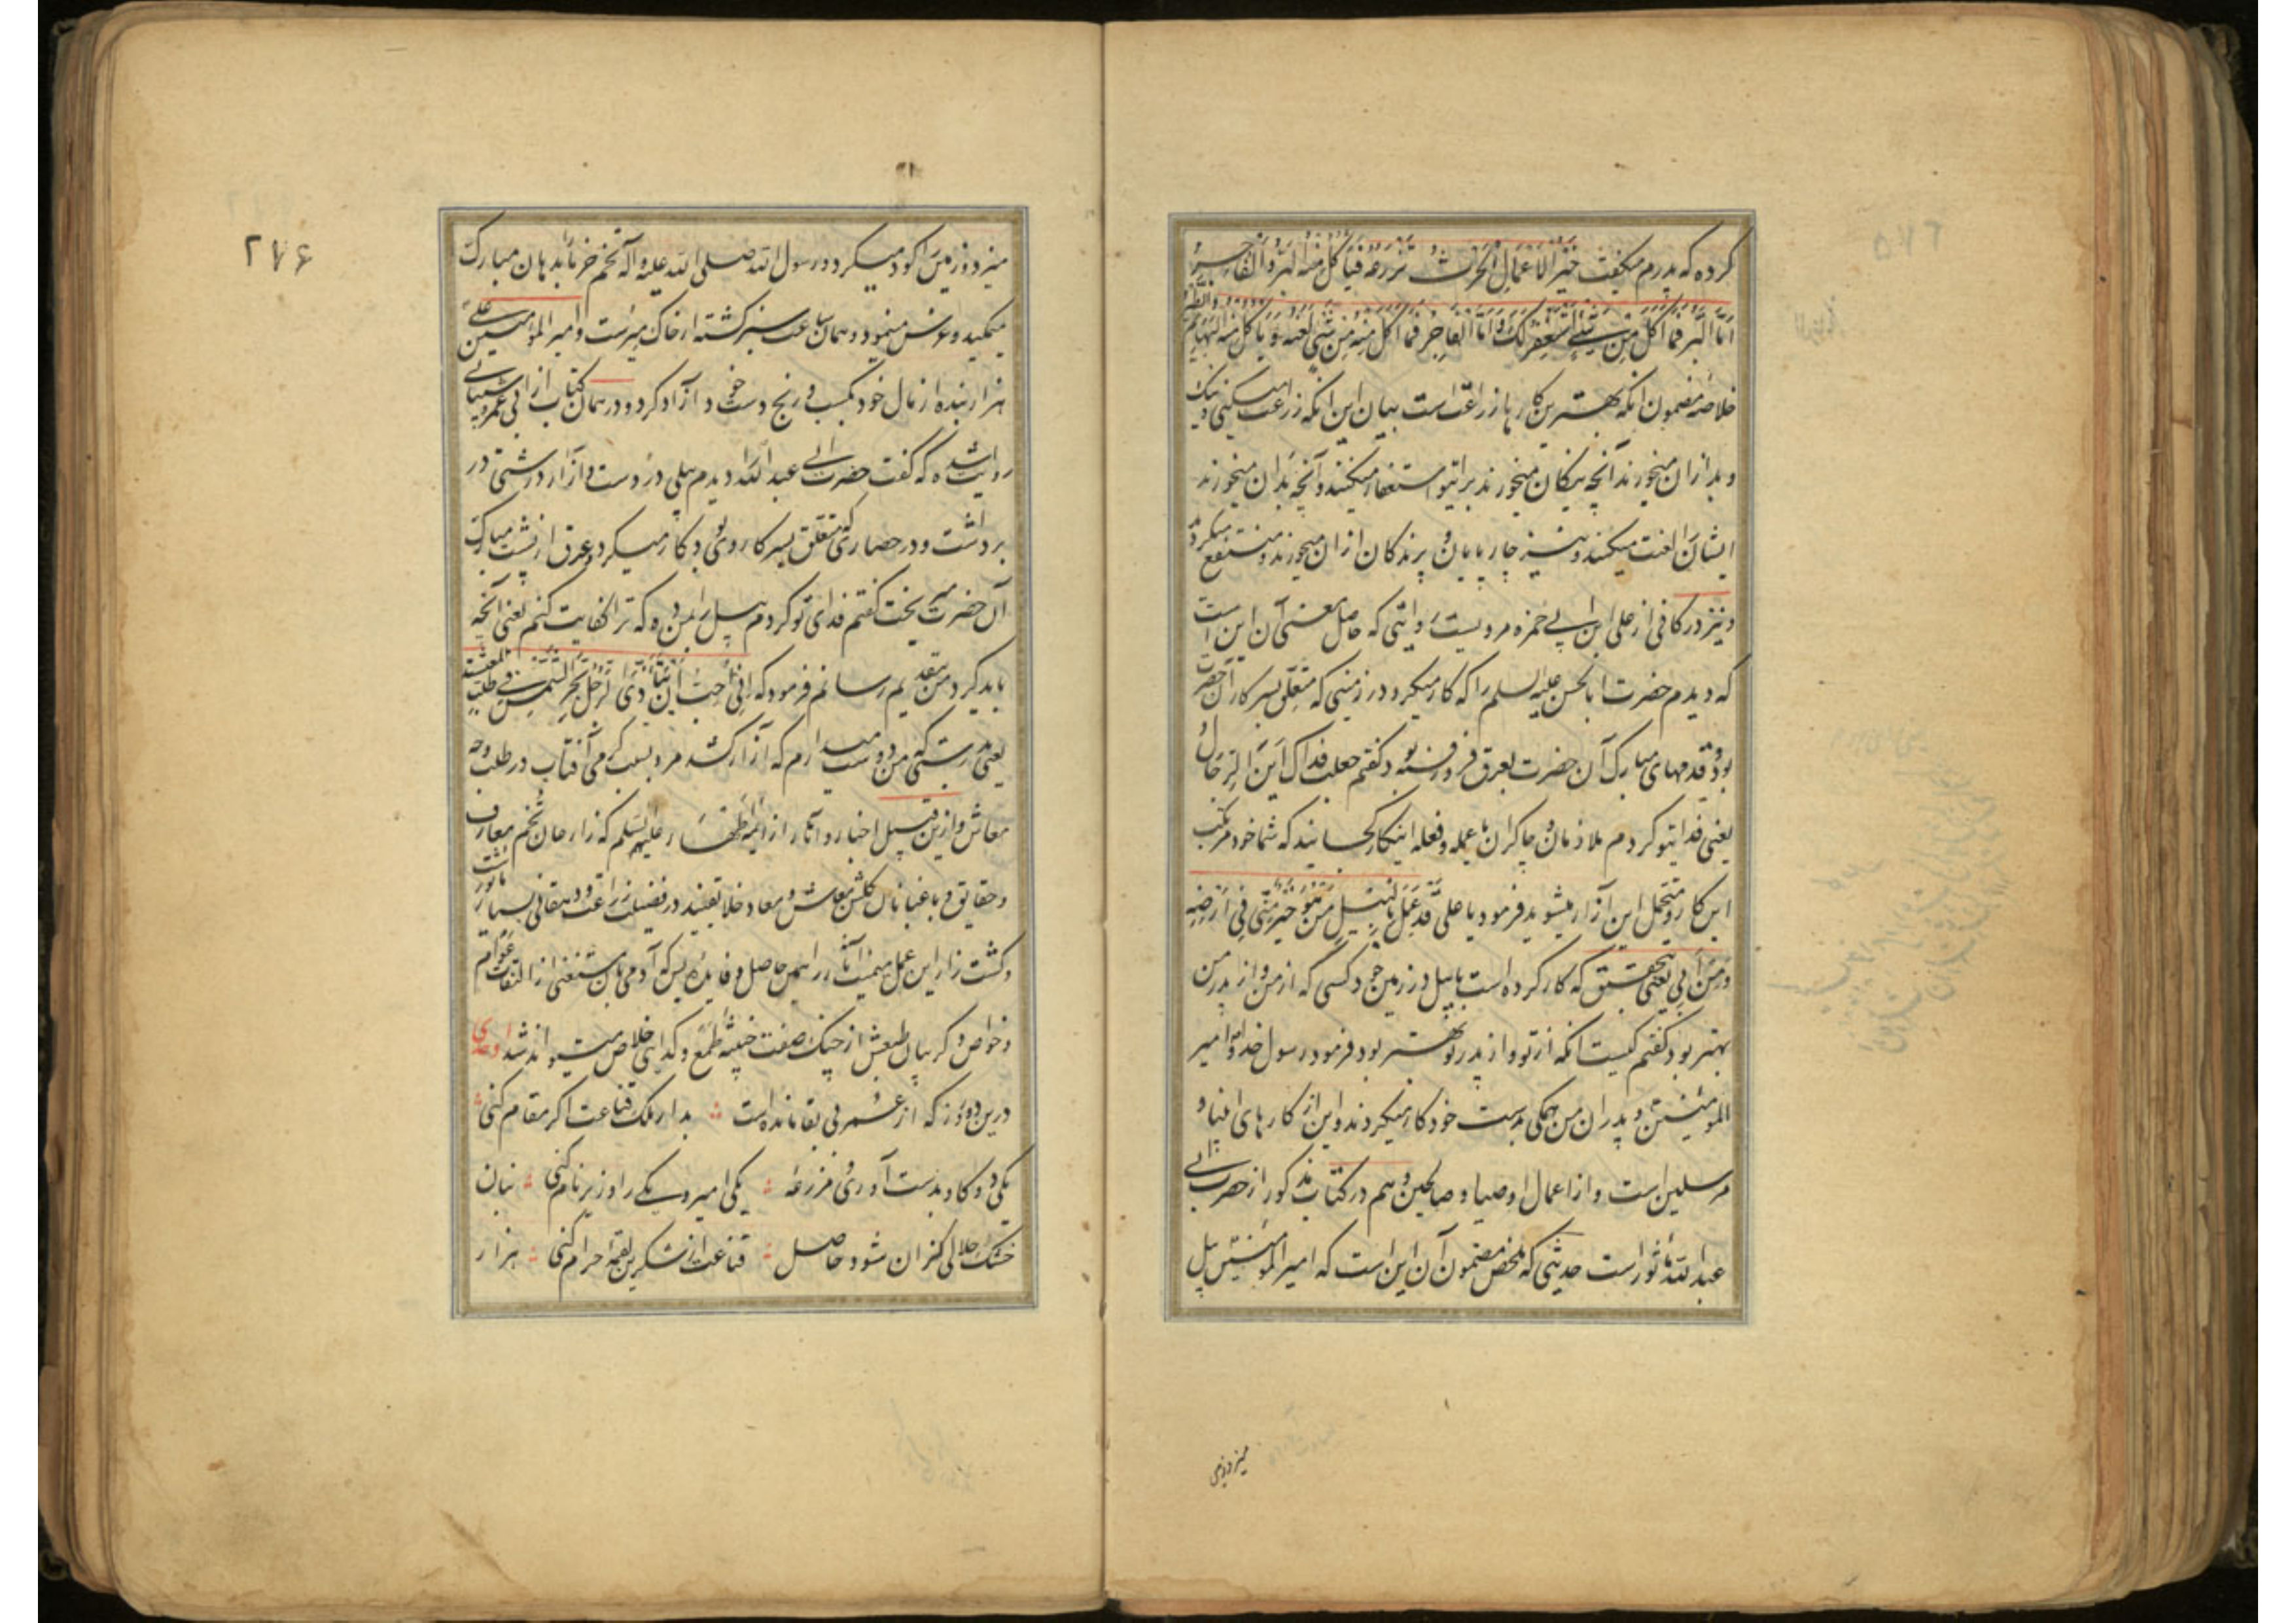 کرده که پدرم میگفت خَیْرُ الاَعْمَالِ الْحَرْثُ تَزْرَعُهُ فَیَأکُلُ مِنْهُ الْبَرُّ وَالْفَاجِرُ
اَمَّا الْبَرُّ فَمَا اَکَلَ مِنْ شَیْءٍ اِسْتَغْفَرَ لَکَ وَ اَمَّا الْفَاجِرُ فَمَا اَکَلَ مِنْهُ مِنْ شَیْءٍ لَعَنَهُ وَ یَأکُلُ مِنْهُ الْبَهَائِمُ وَالطَّیْرُ
خلاصه مضمون آنکه بهترین کارها زراعت است بیان این آنکه زراعت میکنی نیک
و بد ازان میخورند آنچه نیکان میخورند برایتو استغفار میکنند و آنچه بدان میخورند
ایشان را لعنت میکنند و نیز چارپایان و پرندگان ازان میخورند و منتفع میگردند
و نیز در کافی از علی ابن ابی حمزه مرویست روایتی که حاصل معنی آن این است
که دیدم حضرت ابالحسن علیه السلم را که کار میکرد در زمینی که متعلق بسرکار آن حضرت
بود و قدمهای مبارک آن حضرت بعرق فرو رفته بود گفتم جعلت فداک اَیْنَ الرِّجَالُ
یعنی فدایتو کردم ملازمان و چاکران یا عمله و فعله اینکار کجایند که شما خود مرتکب
این کار و متحمل این آزار میشوید فرمود یا علی قَدْ عَمِلَ بِالْبِیْلِ مَنْ هُوَ خَیْرٌ مِنِّی فِی اَرْضِهِ
وَ مِنْ اَبِی یعنی بتحقیق که کار کرده است با بیل در زمین خود کسی که از من و از پدر من
بهتر بود گفتم کیست آنکه از تو و از پدر تو بهتر بود فرمود رسول خدا و امیر
المومنین و پدران من همگی بدست خود کار میکردند و این از کارهای انبیا و
مرسلین است و از اعمال اوصیا و صالحین و هم در کتاب مذکور از حضرت ابی
عبدالله مأثور است حدیثی که ملخص مضمون آن این است که امیر المومنین بیل
میزد و زمین
۲۷۶
میزد و زمین را گود میکرد و رسول الله صلی الله علیه و اله تخم خرما بدهان مبارک
میمکید و غرس مینمود و همان ساعت سبز گشته از خاک میرست و امیر المومنین علی
هزار بنده از مال خود بکسب و رنج دست خود آزاد کرد و در همان کتاب از ابی عمرو شیبانی
روایت شده که گفت حضرت ابی عبدالله را دیدم بیلی در دست و ازار درشتی در
بر داشت و در حصاری که متعلق بسرکار وی بود کار میکرد و عرق از پشت مبارک
آن حضرت میریخت گفتم فدای تو کردم بیل را بمن ده که ترا کفایت کنم یعنی آنچه
باید کرد من بتقدیم رسانم فرمود که اِنِّی اُحِبُّ اَنْ یَتَأَذَّی الرَّجُلُ بِحَرِّ الشَّمْسِ فِی طَلَبِ المعیشة
یعنی بدرستی که من دوست میدارم که آزار کشد مرد بسبب گرمی آفتاب در طلب وجه
معاش و ازین قبیل اخبار و آثار از ائمه اطهار علیهم السلم که زارعان تخم معارف
و حقایق و باغبانان گلشن معاش و معاد خلایقیند در فضیلت زراعت و دهقانی بسیار مأثور است
و کشت زار این عمل میمنت آثار را همین حاصل و فایده بس که آدمی بآن مستغنی از التفات عوام
و خواص و گریبان طبعش از چنگ صفت خبیثه طمع و گدایی خلاص میتواند شد اوحدی
درین دو روز که از عمر بی بقا مانده است ؛ بدار ملک قناعت اگر مقام کنی ؛
یکی دو گاو بدست آوری و مزرعه ؛ یکی امیر و یکی را وزیر نام کنی ؛ بنان
خشک حلالی کزان شود حاصل ؛ قناعت از شکرین لقمه حرام کنی ؛ هزار